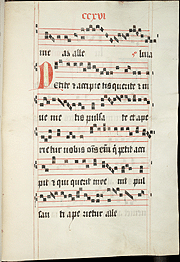 CCXVI
me as alle luia
Petite et accipietis querite et in
uenietis pulsate et ape
rietur uobis omnis enim qui petit acci
pit et qui querit inuenit pul
santi aperietur alle